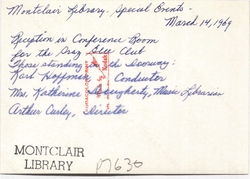 Montclair Library, Special Events -
March 14, 1969
Reception in Conference Room
for the Graz Glee Club
Those standing in the doorway:
Karl Hoffmann, Conductor
Mrs. Katherine Dougherty, Music Librarian
Arthur Curley, Director
MONTCLAIR
LIBRARY
07630